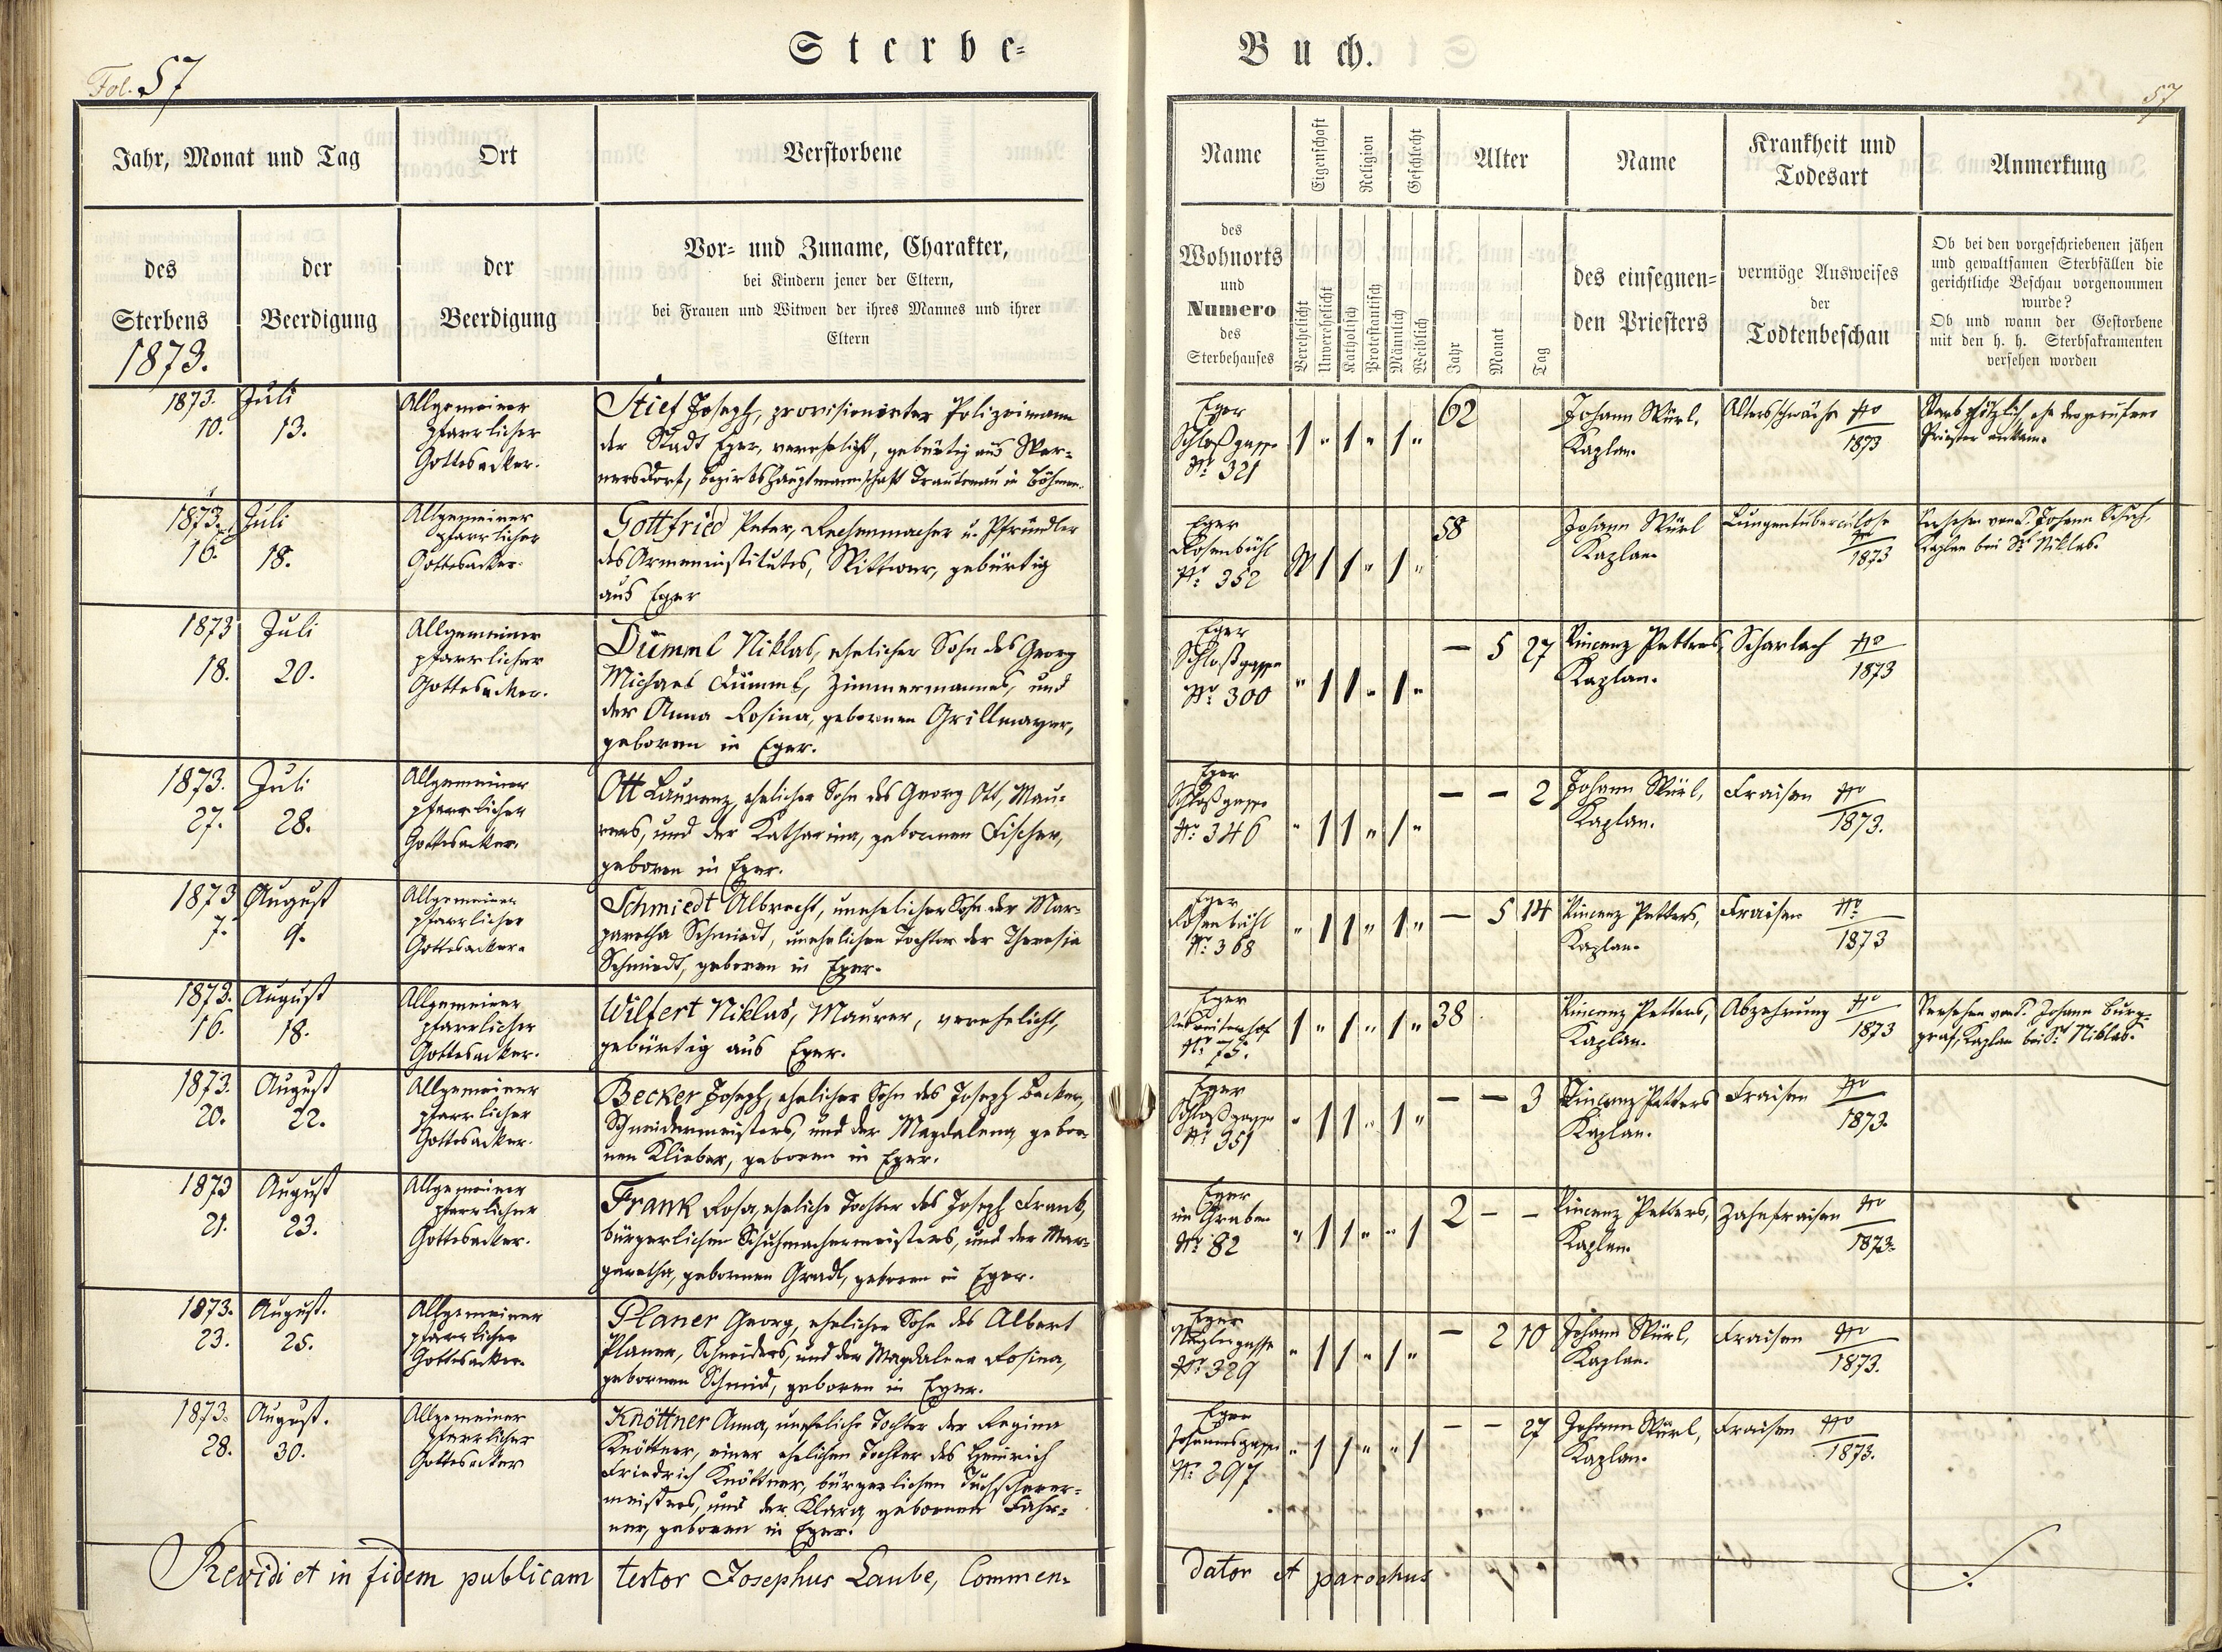 Sterbe=
Buch.
Fol. 57
57
Jahr, Monat und Tag
Ort
Verstorbene
des
Sterbens
1873.
der
Beerdigung
der
Beerdigung
Vor= und Zuname, Charakter,
bei Kindern jener der Eltern,
bei Frauen und Witwen der ihres Mannes und ihrer
Eltern
Name
Eigenschaft
Religion
Geschlecht
Alter
Name
Krankheit und
Todesart
Anmerkung
des
Wohnorts
und
Numero
des
Sterbehauses
Verehelicht
Unverehelicht
Katholisch
Protestantisch
Männlich
Weiblich
Jahr
Monat
Tag
des einsegnen=
den Priesters
vermöge Ausweises
der
Todtenbeschau
Ob bei den vorgeschriebenen jähen
und gewaltsamen Sterbfällen die
gerichtliche Beschau vorgenommen
wurde?
Ob und wann der Gestorbene
mit den h. h. Sterbsakramenten
versehen worden
1873. Juli
10. 13.
Allgemeiner
pfarrlicher
Gottesacker.
Stief Joseph, provisionirter Polizeimann
der Stadt Eger, verehelicht, gebürtig aus
nersdorf, Bezirkshauptmannschaft Trautenau in Böhmen.
Eger
Schloßgasse
Nr. 321
1 " 1 " 1 "
62
Johann Kaplan.
Altersschwäche No
1873
Starb plötzlich, ehe der gerufene
Priester ankam.
1873. Juli
16. 18.
Allgemeiner
pfarrlicher
Gottesacker.
Gottfried Peter, Rechenmacher u. Pfründler
des Armeninstitutes, Wittwer, gebürtig
aus Eger
Eger
Rosenbühl
Nr. 352
W 1 1 " 1 "
58
Johann Kaplan.
Lungentuberculose
1873
Versehen von P. Johann
Kaplan bei St. Niklas.
1873 Juli
18. 20.
Allgemeiner
pfarrlicher
Gottesacker.
Dümml Niklas, ehelicher Sohn des Georg
Michael Dümml, Zimmermannes, und
der Anna Rosina, gebornen Grillmayer,
geboren in Eger.
Eger
Schloßgasse
Nr. 300
" 1 1 " 1 "
— 5 27
Vincenz Petters,
Kaplan.
Scharlach No
1873
1873. Juli
27. 28.
Allgemeiner
pfarrlicher
Gottesacker.
Ott Laurenz, ehelicher Sohn des Georg Ott, Mau=
rers, und der Katharina, gebornen Fischer,
geboren in Eger.
Eger
Schloßgasse
Nr. 346
" 1 1 " 1 "
— — 2
Johann Kaplan.
Fraisen No
1873.
1873 August
7. 9.
Allgemeiner
pfarrlicher
Gottesacker.
Schmiedt Albrecht, unehelicher Sohn der Mar=
garetha Schmiedt, unehelichen Tochter der Theresia
Schmiedt, geboren in Eger.
Eger
Rosenbühl
Nr. 368
" 1 1 " 1 "
— 5 14
Vincenz Petters,
Kaplan.
Fraisen No
1873
1873. August
16. 18.
Allgemeiner
pfarrlicher
Gottesacker.
Wilfert Niklas, Maurer, verehelicht,
gebürtig aus Eger.
Eger
Nr. 75.
1 " 1 " 1 "
38
Vincenz Petters,
Kaplan.
Abzehrung No
1873
Versehen von P. Johann Burg=
graf, Kaplan bei St. Niklas.
1873. August
20. 22.
Allgemeiner
pfarrlicher
Gottesacker.
Becker Joseph, ehelicher Sohn des Joseph Becker,
Schneidermeisters, und der Magdalena, gebor=
nen Klieber, geboren in Eger.
Eger
Schloßgasse
Nr. 351
" 1 1 " 1 "
— — 3
Vincenz Petters
Kaplan.
Fraisen No
1873.
1873 August
21. 23.
Allgemeiner
pfarrlicher
Gottesacker.
Frank Rosa, eheliche Tochter des Joseph Frank,
bürgerlichen Schuhmachermeisters, und der Mar=
garetha, gebornen Gradl, geboren in Eger.
Eger
im Graben
Nr. 82
" 1 1 " " 1
2 — —
Vincenz Petters,
Kaplan.
Zahnfraisen No
1873.
1873. August.
23. 25.
Allgemeiner
pfarrlicher
Gottesacker.
Planer Georg, ehelicher Sohn des Albert
Planer, Schneiders, und der Magdalena Rosina,
gebornen Schmid, geboren in Eger.
Eger
Nr. 329
" 1 1 " 1 "
— 2 10
Johann Kaplan.
Fraisen No
1873.
1873. August.
28. 30.
Allgemeiner
pfarrlicher
Gottesacker
Knöttner Anna, uneheliche Tochter der Regina
Knöttner, einer ehelichen Tochter des Heinrich
Friedrich Knöttner, bürgerlichen Tuchscherer=
meisters, und der Klara, gebornen Fahr=
ner, geboren in Eger.
Eger
Johannsgasse
Nr. 297
" 1 1 " " 1
— — 27
Johann Kaplan.
Fraisen No
1873.
Revidi et in fidem publicam testor Josephus Laube, Commen=
dator et parochus